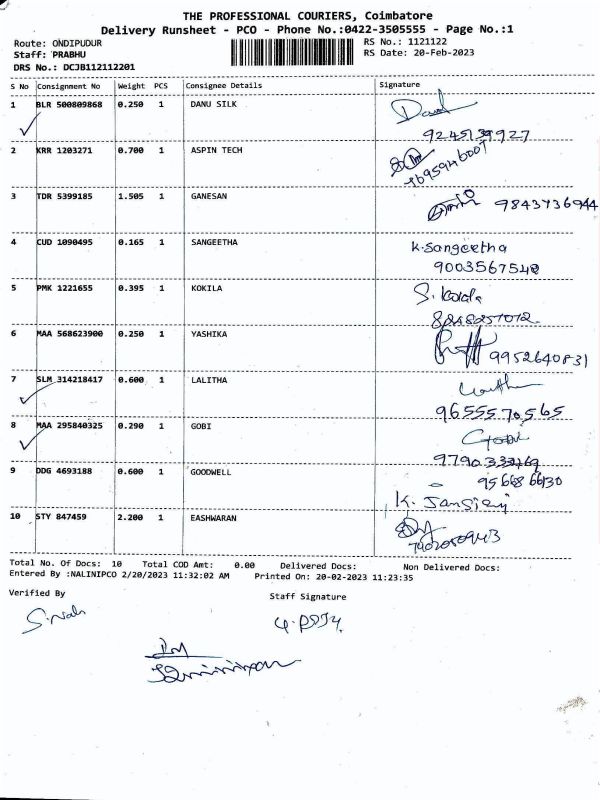 THE PROFESSIONAL COURIERS, Coimbatore
Delivery Runsheet - PCO - Phone No.:0422-3505555 - Page No.:1
Route: ONDIPUDUR RS No.: 1121122
Staff: PRABHU RS Date: 20-Feb-2023
DRS No.: DCJB112112201
S No Consignment No Weight PCS Consignee Details Signature
1 BLR 500809868 0.250 1 DANU SILK
9245139927
2 KRR 1203271 0.700 1 ASPIN TECH
3 TDR 5399185 1.505 1 GANESAN 9843736944
4 CUD 1090495 0.165 1 SANGEETHA K.Sangeetha
9003567542
5 PMK 1221655 0.395 1 KOKILA S. Kokila
6 MAA 568623900 0.250 1 YASHIKA
9952640831
7 SLM 314218417 0.600 1 LALITHA
9655570565
8 MAA 295840325 0.290 1 GOBI Gobi
9 DDG 4693188 0.600 1 GOODWELL
10 STY 847459 2.200 1 EASHWARAN
Total No. Of Docs: 10 Total COD Amt: 0.00 Delivered Docs: Non Delivered Docs:
Entered By :NALINIPCO 2/20/2023 11:32:02 AM Printed On: 20-02-2023 11:23:35
Verified By Staff Signature